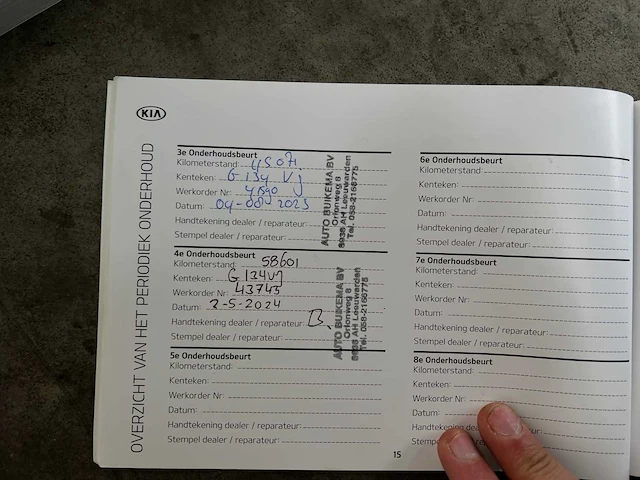 KIA
OVERZICHT VAN HET PERIODIEK ONDERHOUD
3e Onderhoudsbeurt
Kilometerstand: 45071
Kenteken: G 134 VJ
Werkorder Nr: 41590
Datum: 04-08-2023
Handtekening dealer / reparateur:
Stempel dealer / reparateur:
AUTO BUIKEMA BV
Orionweg 8
8938 AH Leeuwarden
Tel. 058-2168775
4e Onderhoudsbeurt
Kilometerstand: 58601
Kenteken: G134VJ
Werkorder Nr: 43745
Datum: 2-5-2024
Handtekening dealer / reparateur:
Stempel dealer / reparateur:
AUTO BUIKEMA BV
Orionweg 8
8938 AH Leeuwarden
Tel. 058-2168775
5e Onderhoudsbeurt
Kilometerstand:
Kenteken:
Werkorder Nr:
Datum:
Handtekening dealer / reparateur:
Stempel dealer / reparateur:
15
6e Onderhoudsbeurt
Kilometerstand:
Kenteken:
Werkorder Nr:
Datum:
Handtekening dealer / reparateur:
Stempel dealer / reparateur:
7e Onderhoudsbeurt
Kilometerstand:
Kenteken:
Werkorder Nr:
Datum:
Handtekening dealer / reparateur:
Stempel dealer / reparateur:
8e Onderhoudsbeurt
Kilometerstand:
Kenteken:
Werkorder Nr:
Datum:
Handtekening dea
Stempe